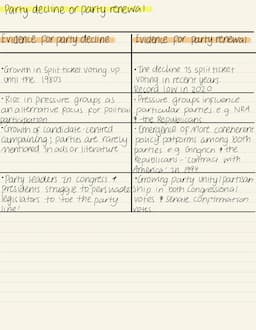 Party decline or party renewal
Evidence for party decline
Evidence for party renewal
• Growth in split ticket voting up
until the 1980s
• The decline is split ticket
voting in recent years.
Record low in 2020
• Rise in pressure groups as
an alternative focus for political
participation
• Pressure groups influence
particular parties e.g. NRA
& the Republicans
• Growth of candidate-centred
campaigning; parties are rarely
mentioned in ads or literature
• Emergence of more coherent
policy platforms among both
parties e.g. Gingrich & the
Republicans - 'Contract with
America' in 1994
• Party leaders in congress &
presidents struggle to persuade
legislators to 'toe the party
line'
• Growing party unity/partisan
ship in both congressional
votes & senate confirmation
votes